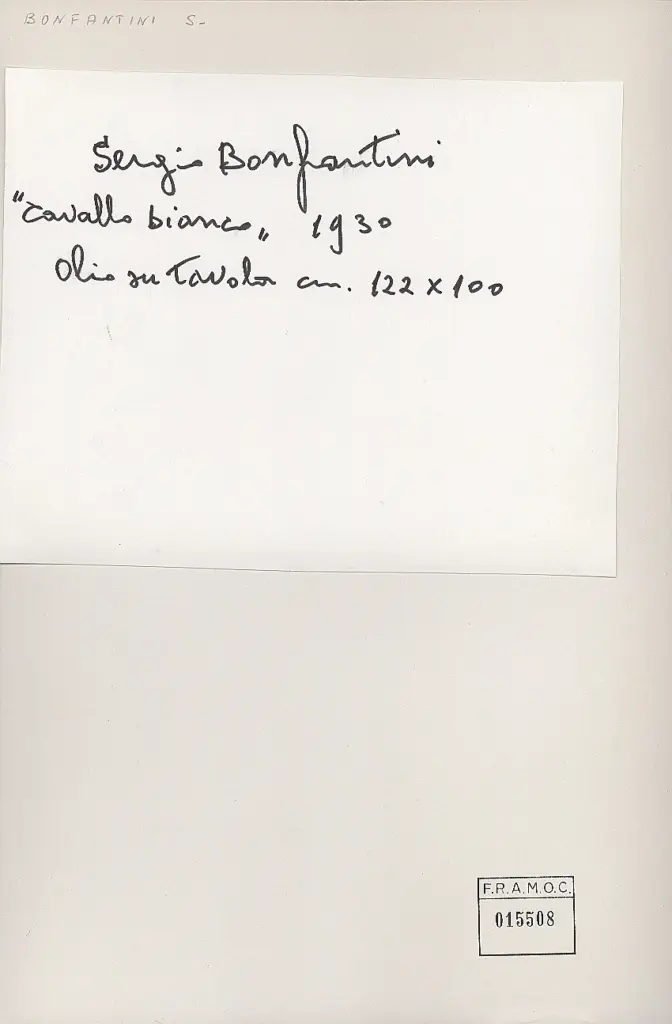 BONFANTINI S-
Sergio Bonfantini
"Cavallo bianco„ 1930
Olio su tavola cm. 122 x 100
F.R.A.M.O.C.
015508